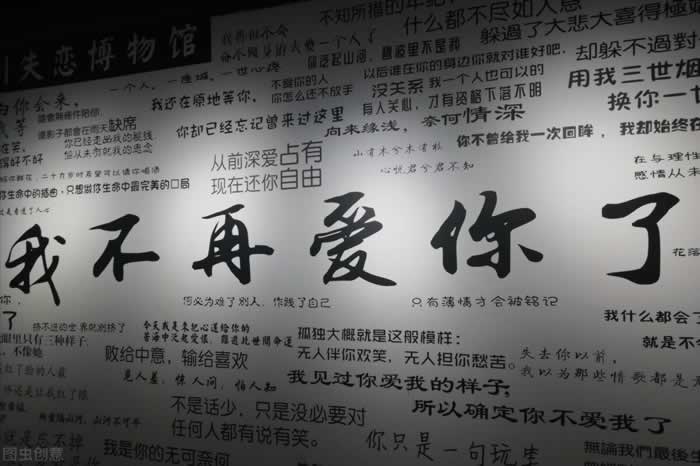 失恋博物馆
不知所措的年纪
什么都不尽如人意
躲過了大悲大喜得極
一个人,一座城,一世心疼
以后谁在你的身边你就对谁好吧
却躲不過對
不爱你的人
你怎么还不放手
没关系 我一个人也可以的
用我三世烟
换你一世
我还在原地等你,
你却已经忘记曾来过这里
有人关心,才有资格下落不明
向来缘浅,奈何情深
你不曾给我一次回眸,我却始终在
缺席
从前深爱占有
现在还你自由
山有木兮木有枝
心悦君兮君不知
在与理性
感情从未
我不再爱你了
何必为难了别人,你贱了自己
只有薄情才会被铭记
花落
我什么都会了
就是不会
挤不进的世界就别挤了
今天我是来把心还给你的
败给中意,输给喜欢
孤独大概就是这般模样:
无人伴你欢笑,无人担你愁苦。
失去你以前,
我以为那些情歌都是
见人羞,惊人问,怕人知
我见过你爱我的样子,
所以确定你不爱我了
不是话少,只是没必要对
任何人都有说有笑。
我是你的无可奈何
你只是一句玩笑
無論我們最後生
图虫创意